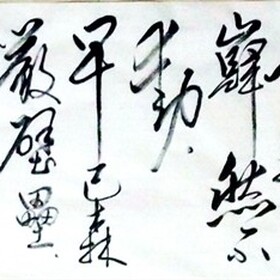 巋然不
動
早已森
嚴壁壘